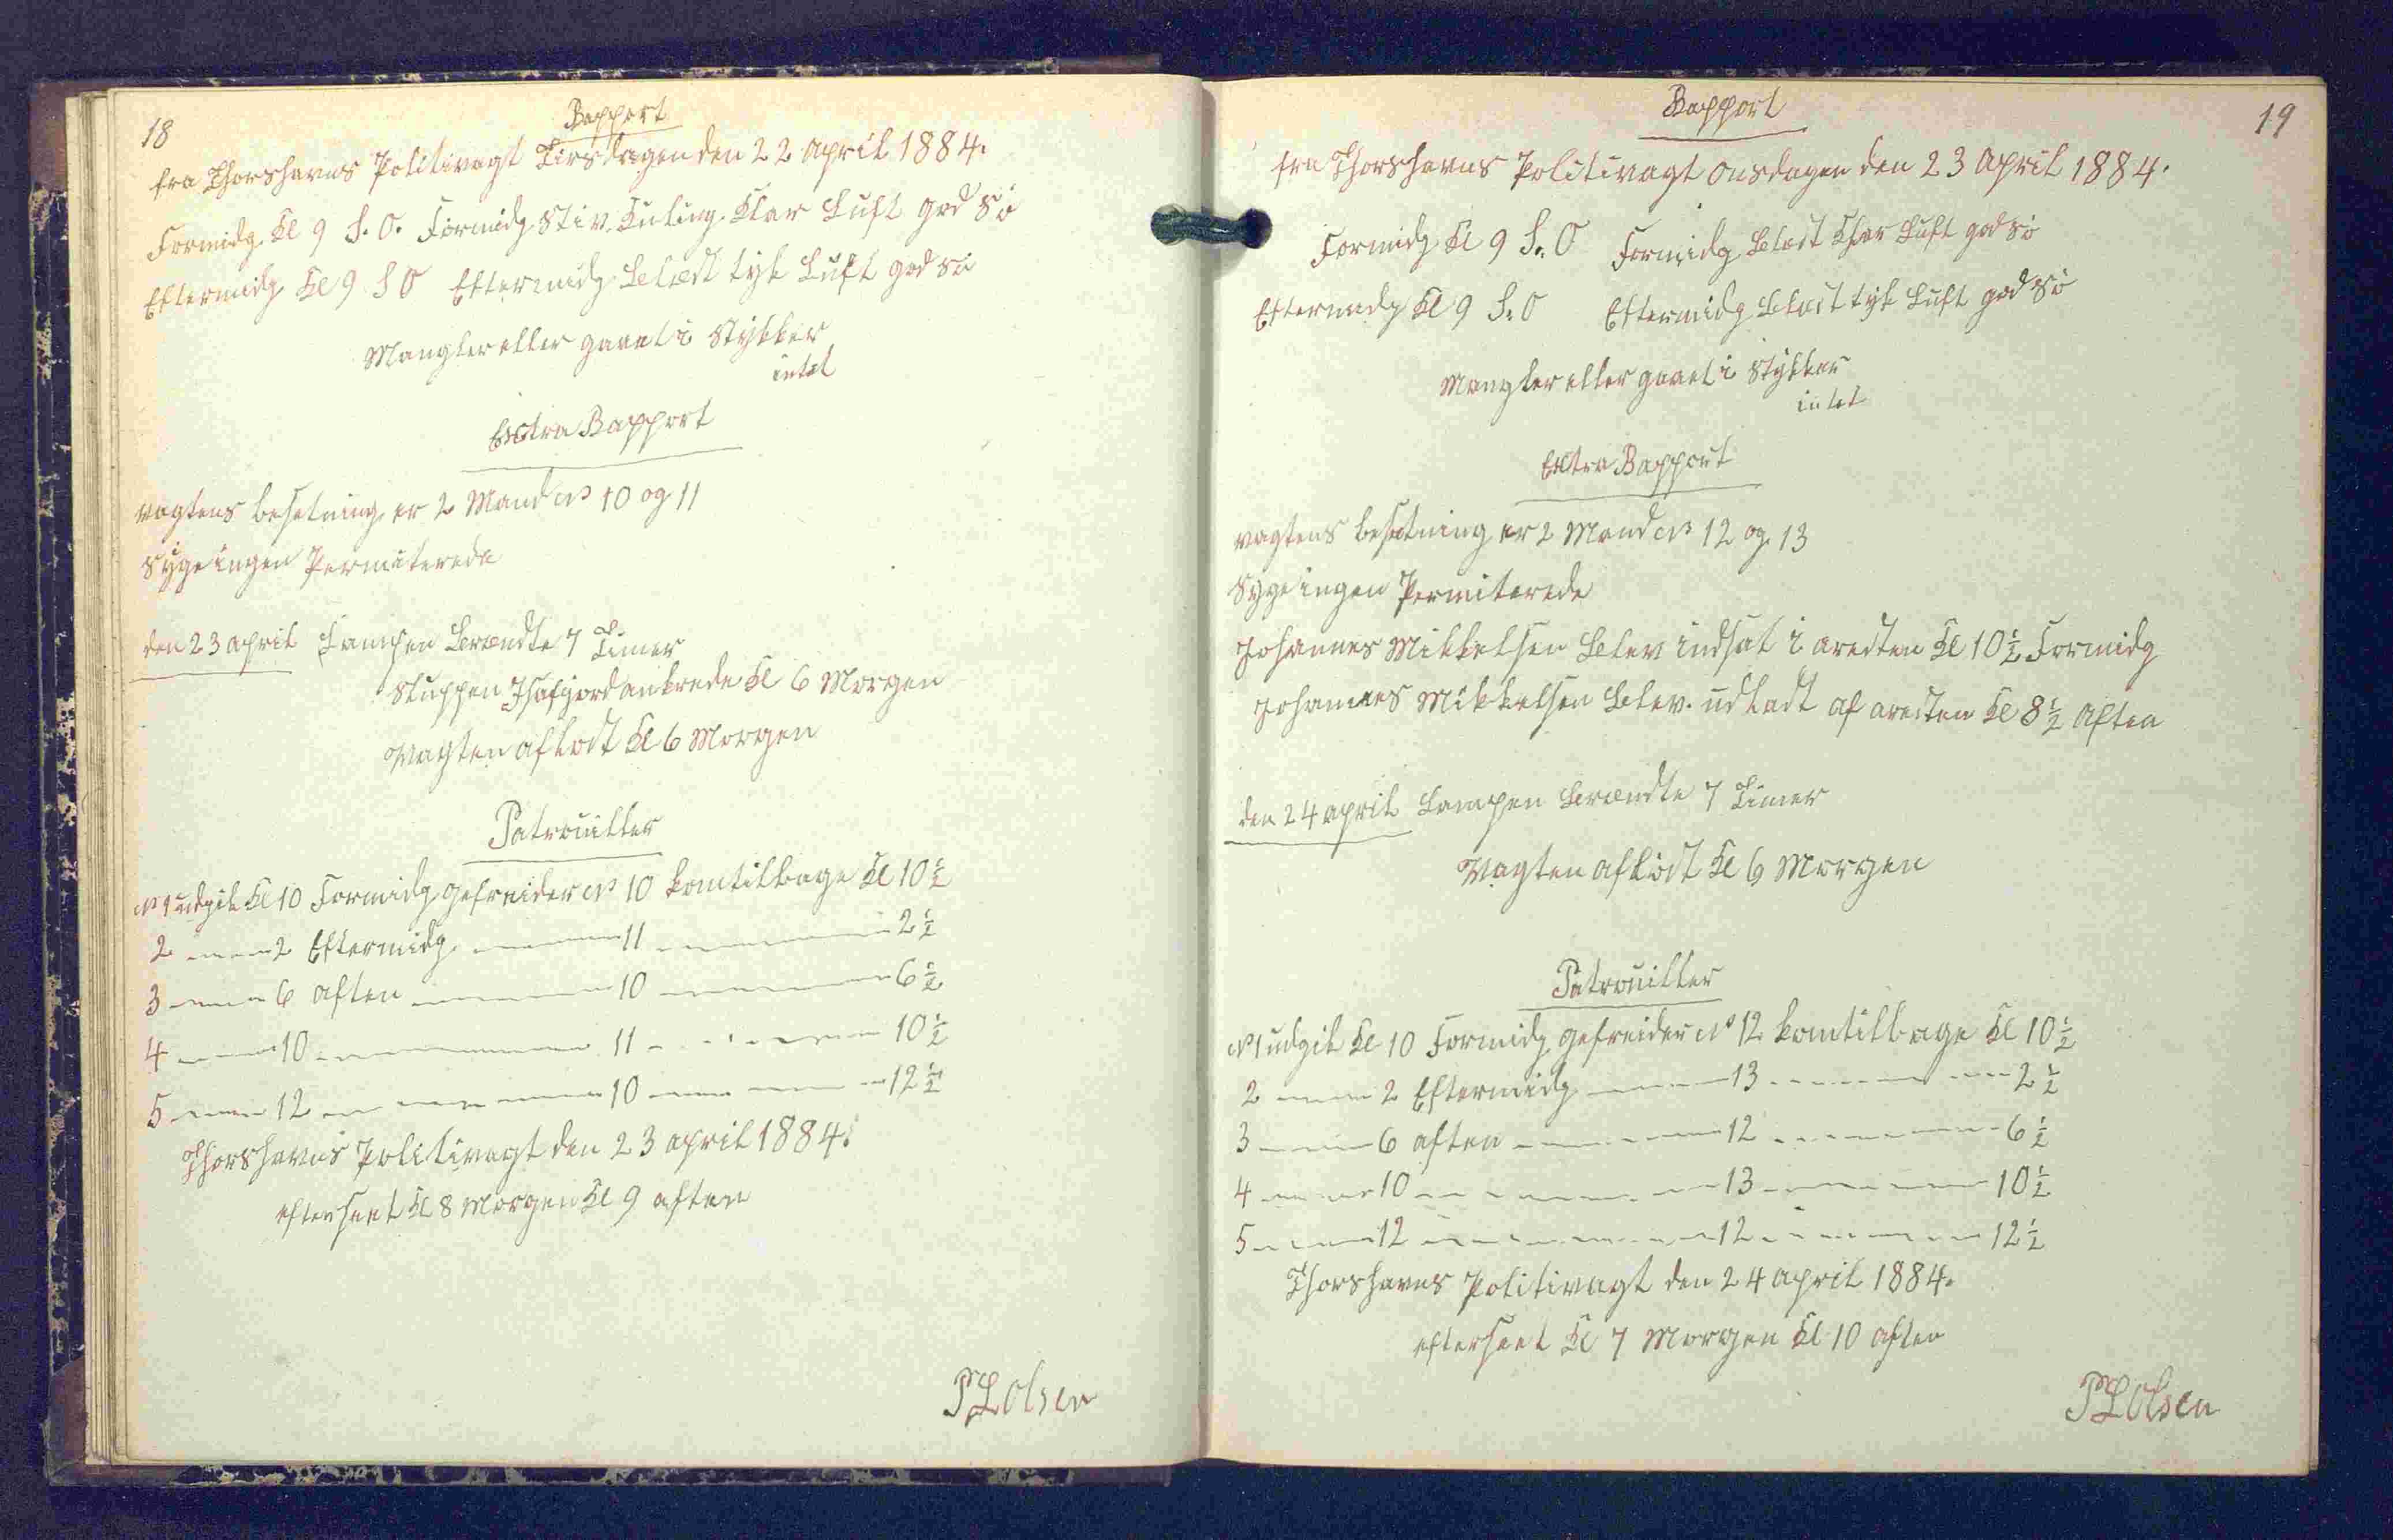 18
Rapport
fra Thorshavns Politivagt Tirsdagen den 22 April 1884.
Formidg. Kl 9 S. O. Formidg Stiv Kuling. Klar Luft god Sö
Eftermidg Kl 9 S O Eftermidg Blæst tyk Luft god Sö
Mangler eller gaaet i Stykker
intet
Extra Rapport
Vagtens besetning er 2 Mand No 10 og 11
Syge ingen Permiterede
den 23 April Lampen Brændte 7 Timer
Sluppen Isafjord ankrede Kl 6 Morgen
Vagten aflöst Kl 6 Morgen
Patrouiller
No 1 udgik Kl 10 Formidg Gefreider No 10 kom tilbage Kl 10 1/2
2 — — 2 Eftermidg — — 11 — — 2 1/2
3 — — 6 Aften — — 10 — — 6 1/2
4 — — 10 — — 11 — — 10 1/2
5 — — 12 — — 10 — — 12 1/2
Thorshavns Politivagt den 23 April 1884.
efterseet Kl 8 Morgen Kl 9 Aften
P L Olsen
19
Rapport
fra Thorshavns Politivagt Onsdagen den 23 April 1884.
Formidg Kl 9 S. O Formidg Blæst Klar Luft god Sö
Eftermidg Kl 9 S. O Eftermidg Blæst tyk Luft god Sö
Mangler eller gaaet i Stykker
intet
Extra Rapport
Vagtens besetning er 2 Mand No 12 og 13
Syge ingen Permiterede
Johannes Mikkelsen Blev indsat i aresten Kl 10 1/2 Formidg
Johannes Mikkelsen Blev udladt af aresten Kl 8 1/2 Aften
den 24 April Lampen Brændte 7 Timer
Vagten aflöst Kl 6 Morgen
Patrouiller
No 1 udgik Kl 10 Formidg Gefreider No 12 kom tilbage Kl 10 1/2
2 — — 2 Eftermidg — — 13 — — 2 1/2
3 — — 6 Aften — — 12 — — 6 1/2
4 — — 10 — — 13 — — 10 1/2
5 — — 12 — — 12 — — 12 1/2
Thorshavns Politivagt den 24 April 1884.
efterseet Kl 7 Morgen Kl 10 Aften
P L Olsen